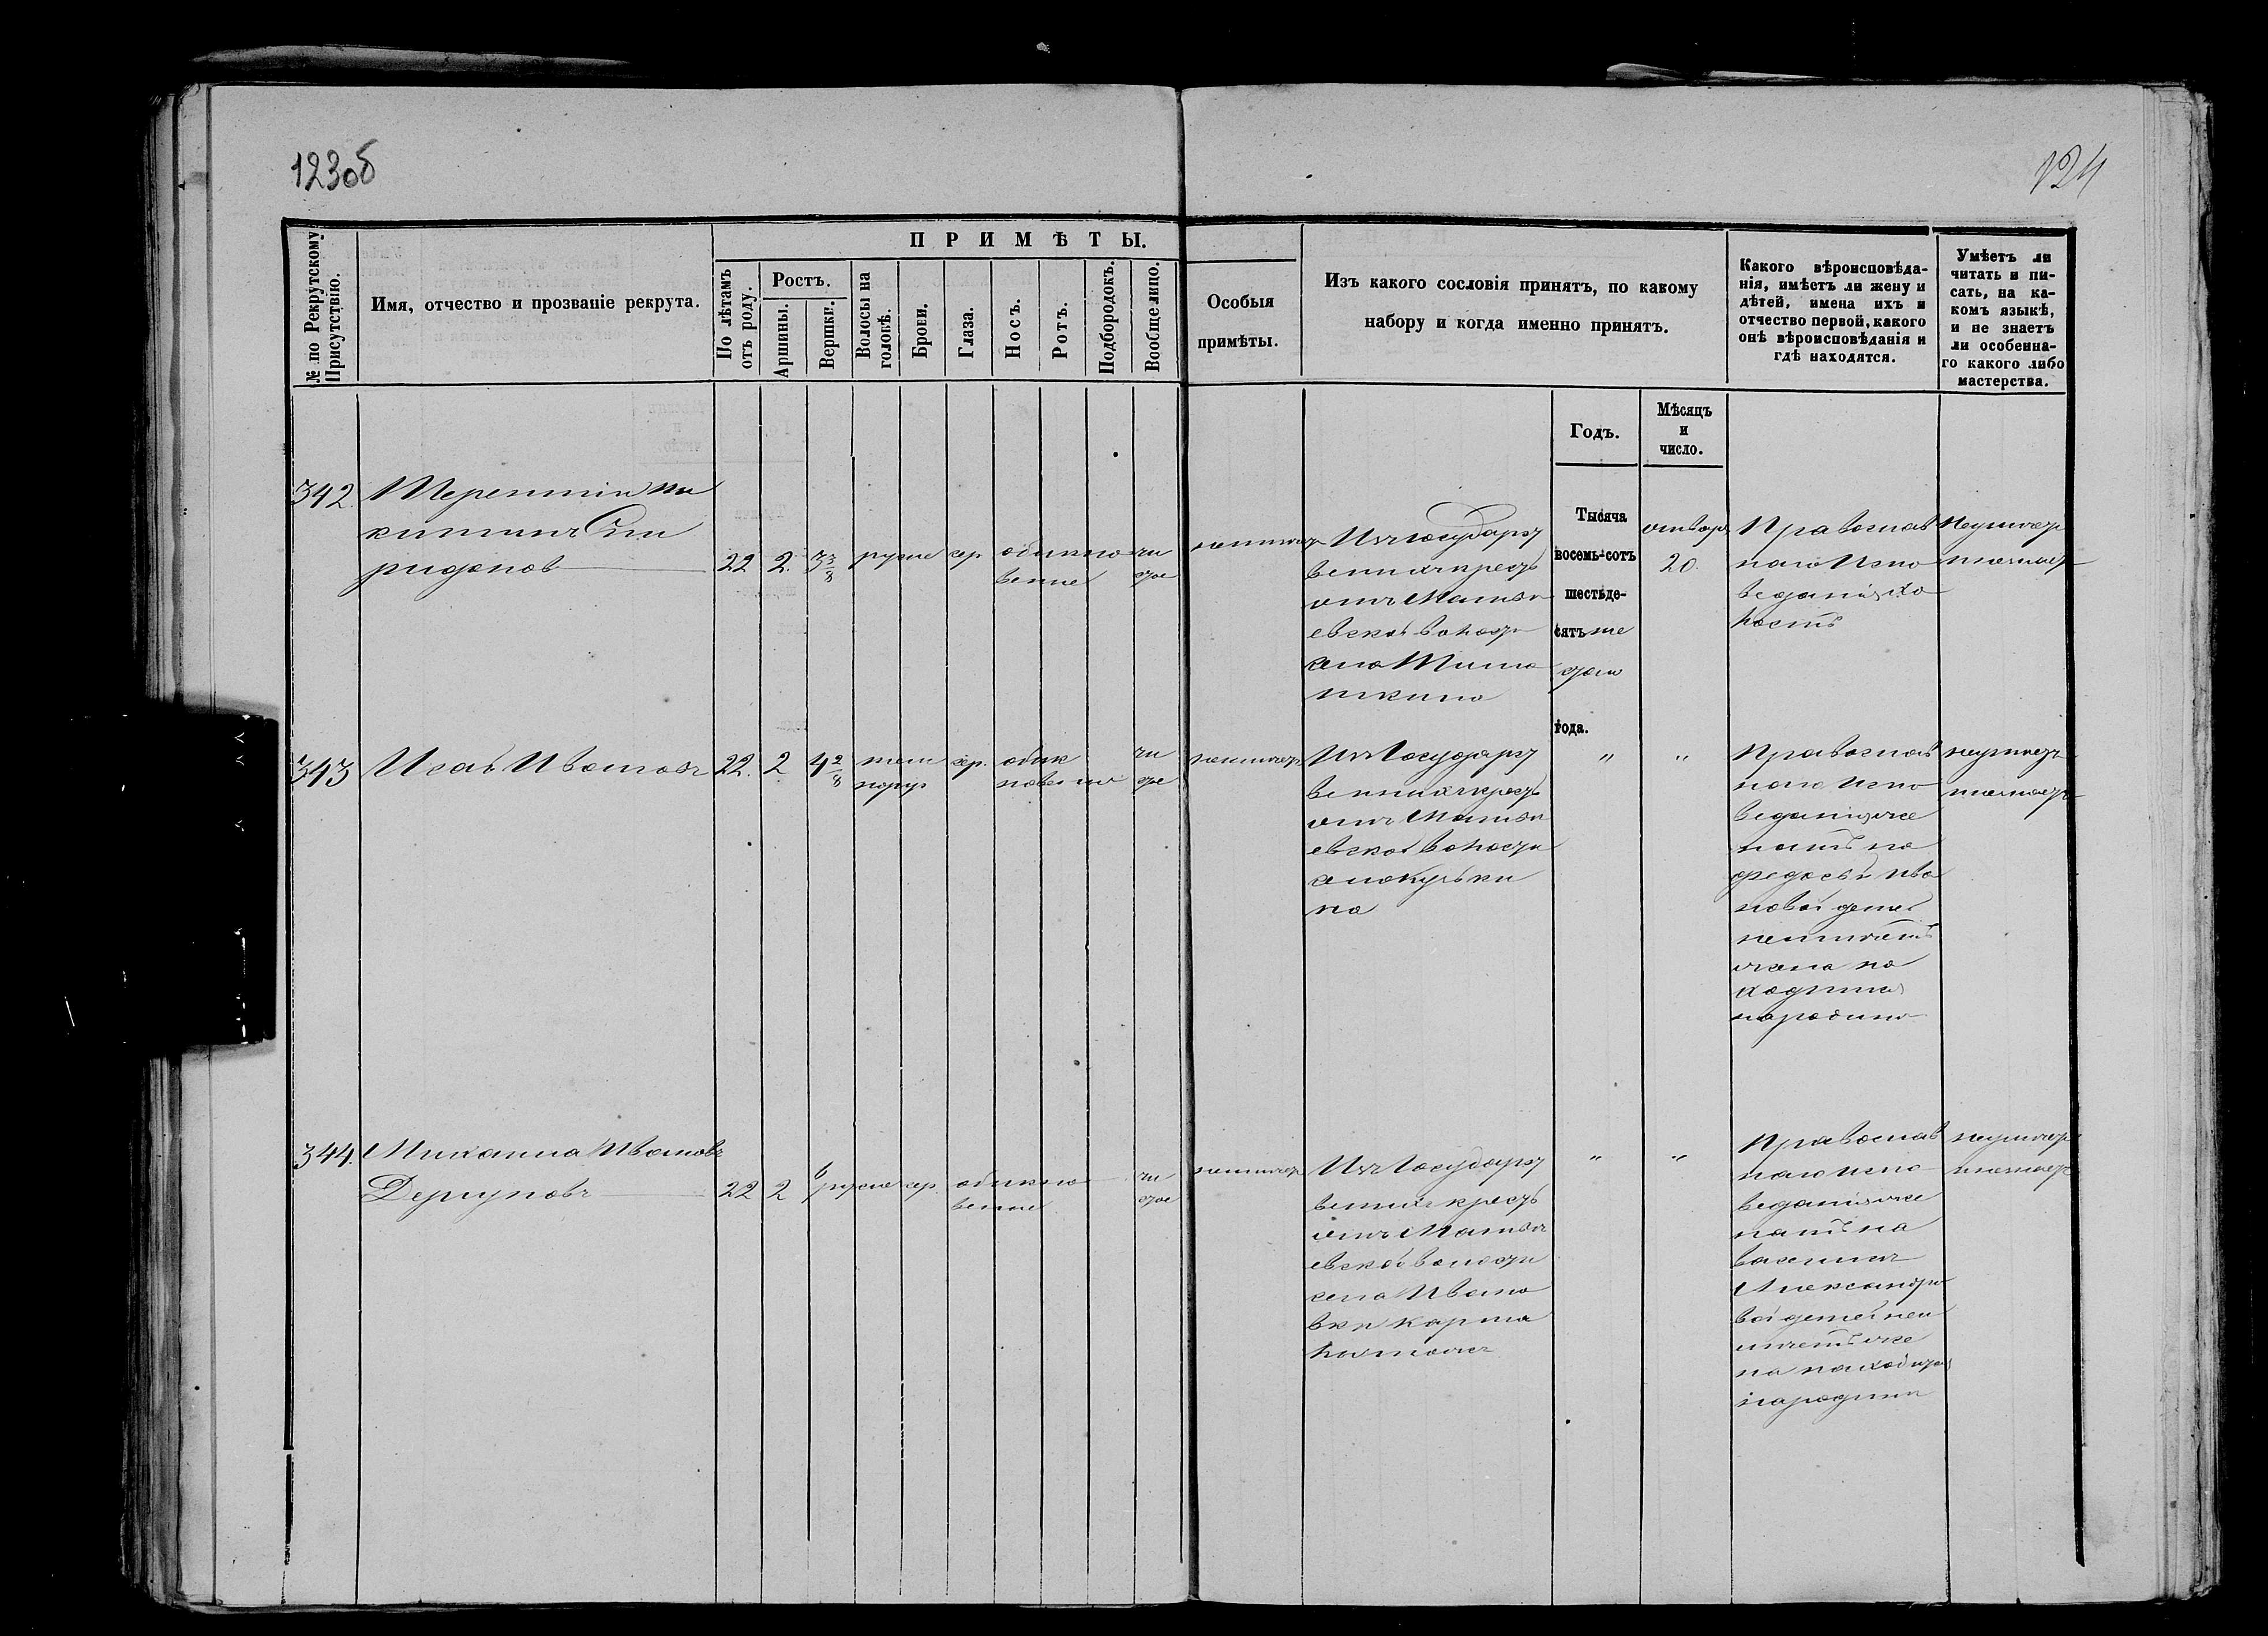 123об
124
№ по Рекрутскому Присутствію.
Имя, отчество и прозваніе рекрута.
ПРИМѢТЫ.
По лѣтамъ отъ роду.
Ростъ.
Аршины.
Вершки.
Волосы на головѣ.
Брови.
Глаза.
Носъ.
Ротъ.
Подбородокъ.
Вообще лицо.
Особыя
примѣты.
Изъ какого сословія принятъ, по какому
набору и когда именно принятъ.
Какого вѣроисповѣда-
нія, имѣетъ ли жену и
дѣтей, имена ихъ и
отчество первой, какого
онѣ вѣроисповѣданія и
гдѣ находятся.
Умѣетъ ли
читать и пи-
сать, на ка-
комъ языкѣ,
и не знаетъ
ли особенна-
го какого либо
мастерства.
Годъ.
Мѣсяцъ
и
число.
342.
Терентій Ни
китинъ Спи
ридонов
22 2. 3 3/8 русые сер. обикно
венне
чи
стое
Изъ Государст
венныхъ крест
Матви
евской волост
село Тимо
шкино
Тысяча
восемь-сотъ
шестьде-
сятъ ше
стого
года.
января
20.
Православ
наго испо
веданія хо
лостъ
неумеет
343
Исай Иванов
22. 2 4 2/8 тем
норус
сер. обик
новенно
чи
сте
Изъ Государст
венныхъ крест
Матви
евской волости
" "
Православ
наго испо
веданія же
натъ на
Федосьи Ива
новой детей
неимеетъ
жена на
ходится
народине
неумеет
344.
Михаила Иванов
Дергуновъ
22 2 6 русые сер. обикно
венне
чи
стое
Изъ Государст
венныхъ крест
Матви
евской волости
села Ивано
вки
" "
Православ
наго испо
веданія же
натъ на
Александро
вой детей неи
меетъ же
на находится
народини
неумеет